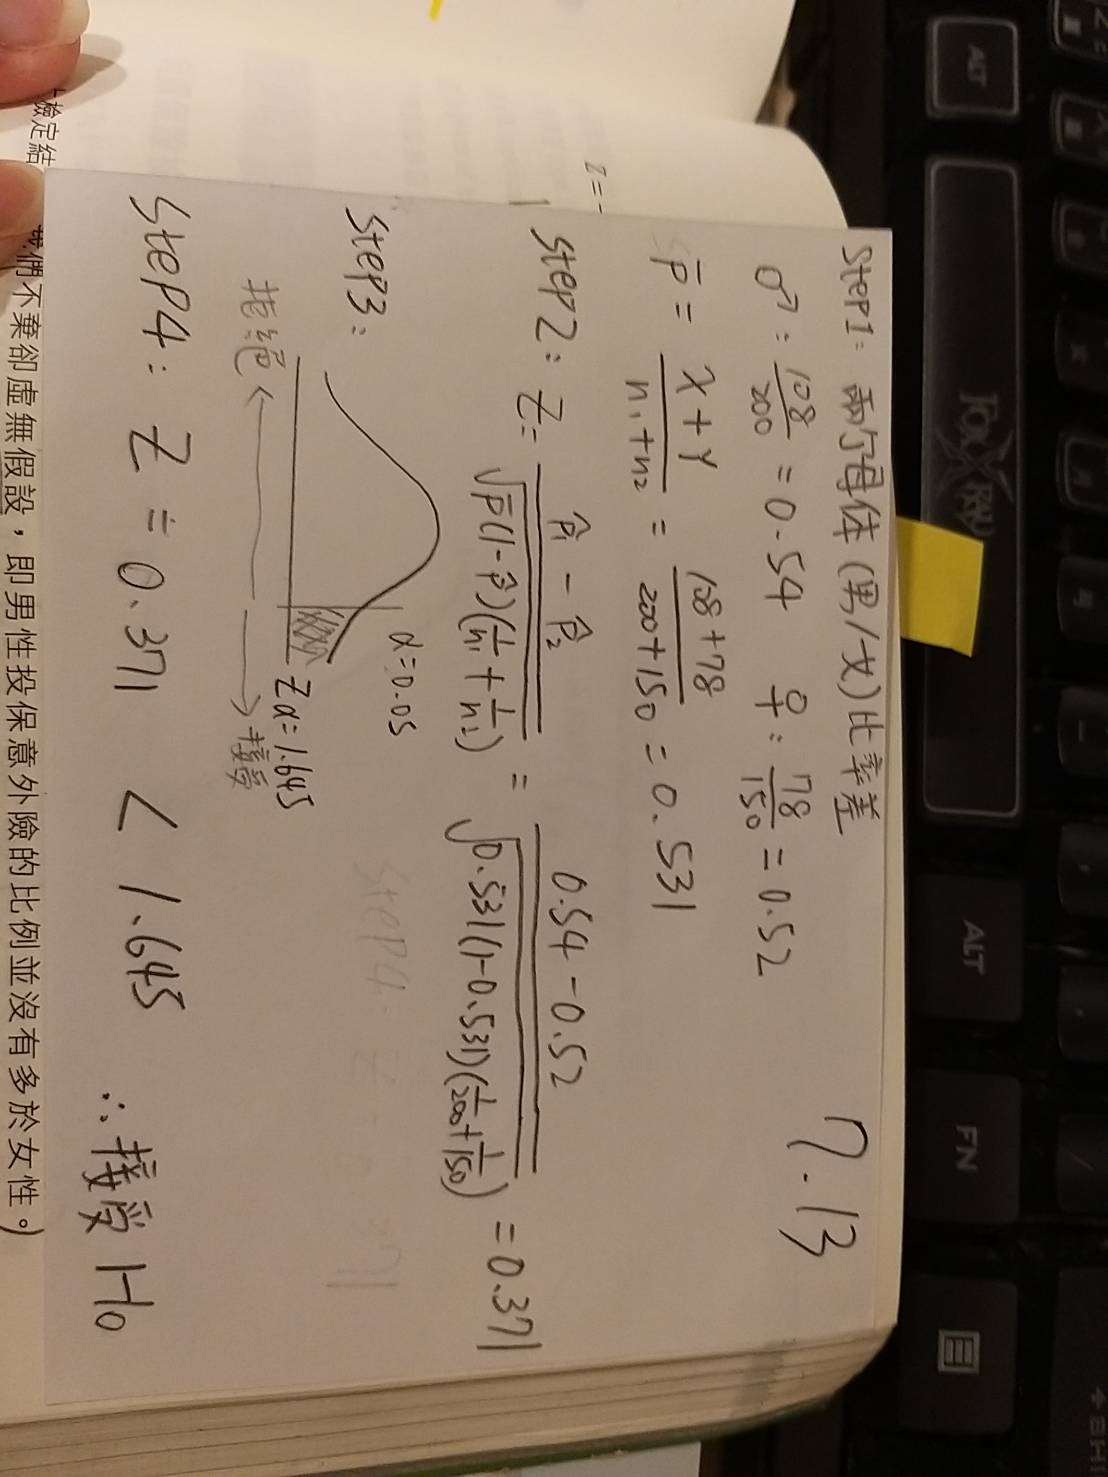 7.13
Step1: 兩个母体(男/女)比率差
♂: 108/200 = 0.54 ♀: 78/150 = 0.52
p̄ = X+Y/n₁+n₂ = 108+78/200+150 = 0.531
Step2: Z = p̂₁ - p̂₂/√p̄(1-p̄)(1/n₁+1/n₂) = 0.54-0.52/√0.531(1-0.531)(1/200+1/150) = 0.371
Step3:
α=0.05
Zα=1.645
拒絕 ← → 接受
Step4: Z = 0.371 < 1.645 ∴接受 H₀
檢定結
我們不棄卻虛無假設，即男性投保意外險的比例並沒有多於女性。)
Z = -
ALT
FOXXRAY
ALT
FN